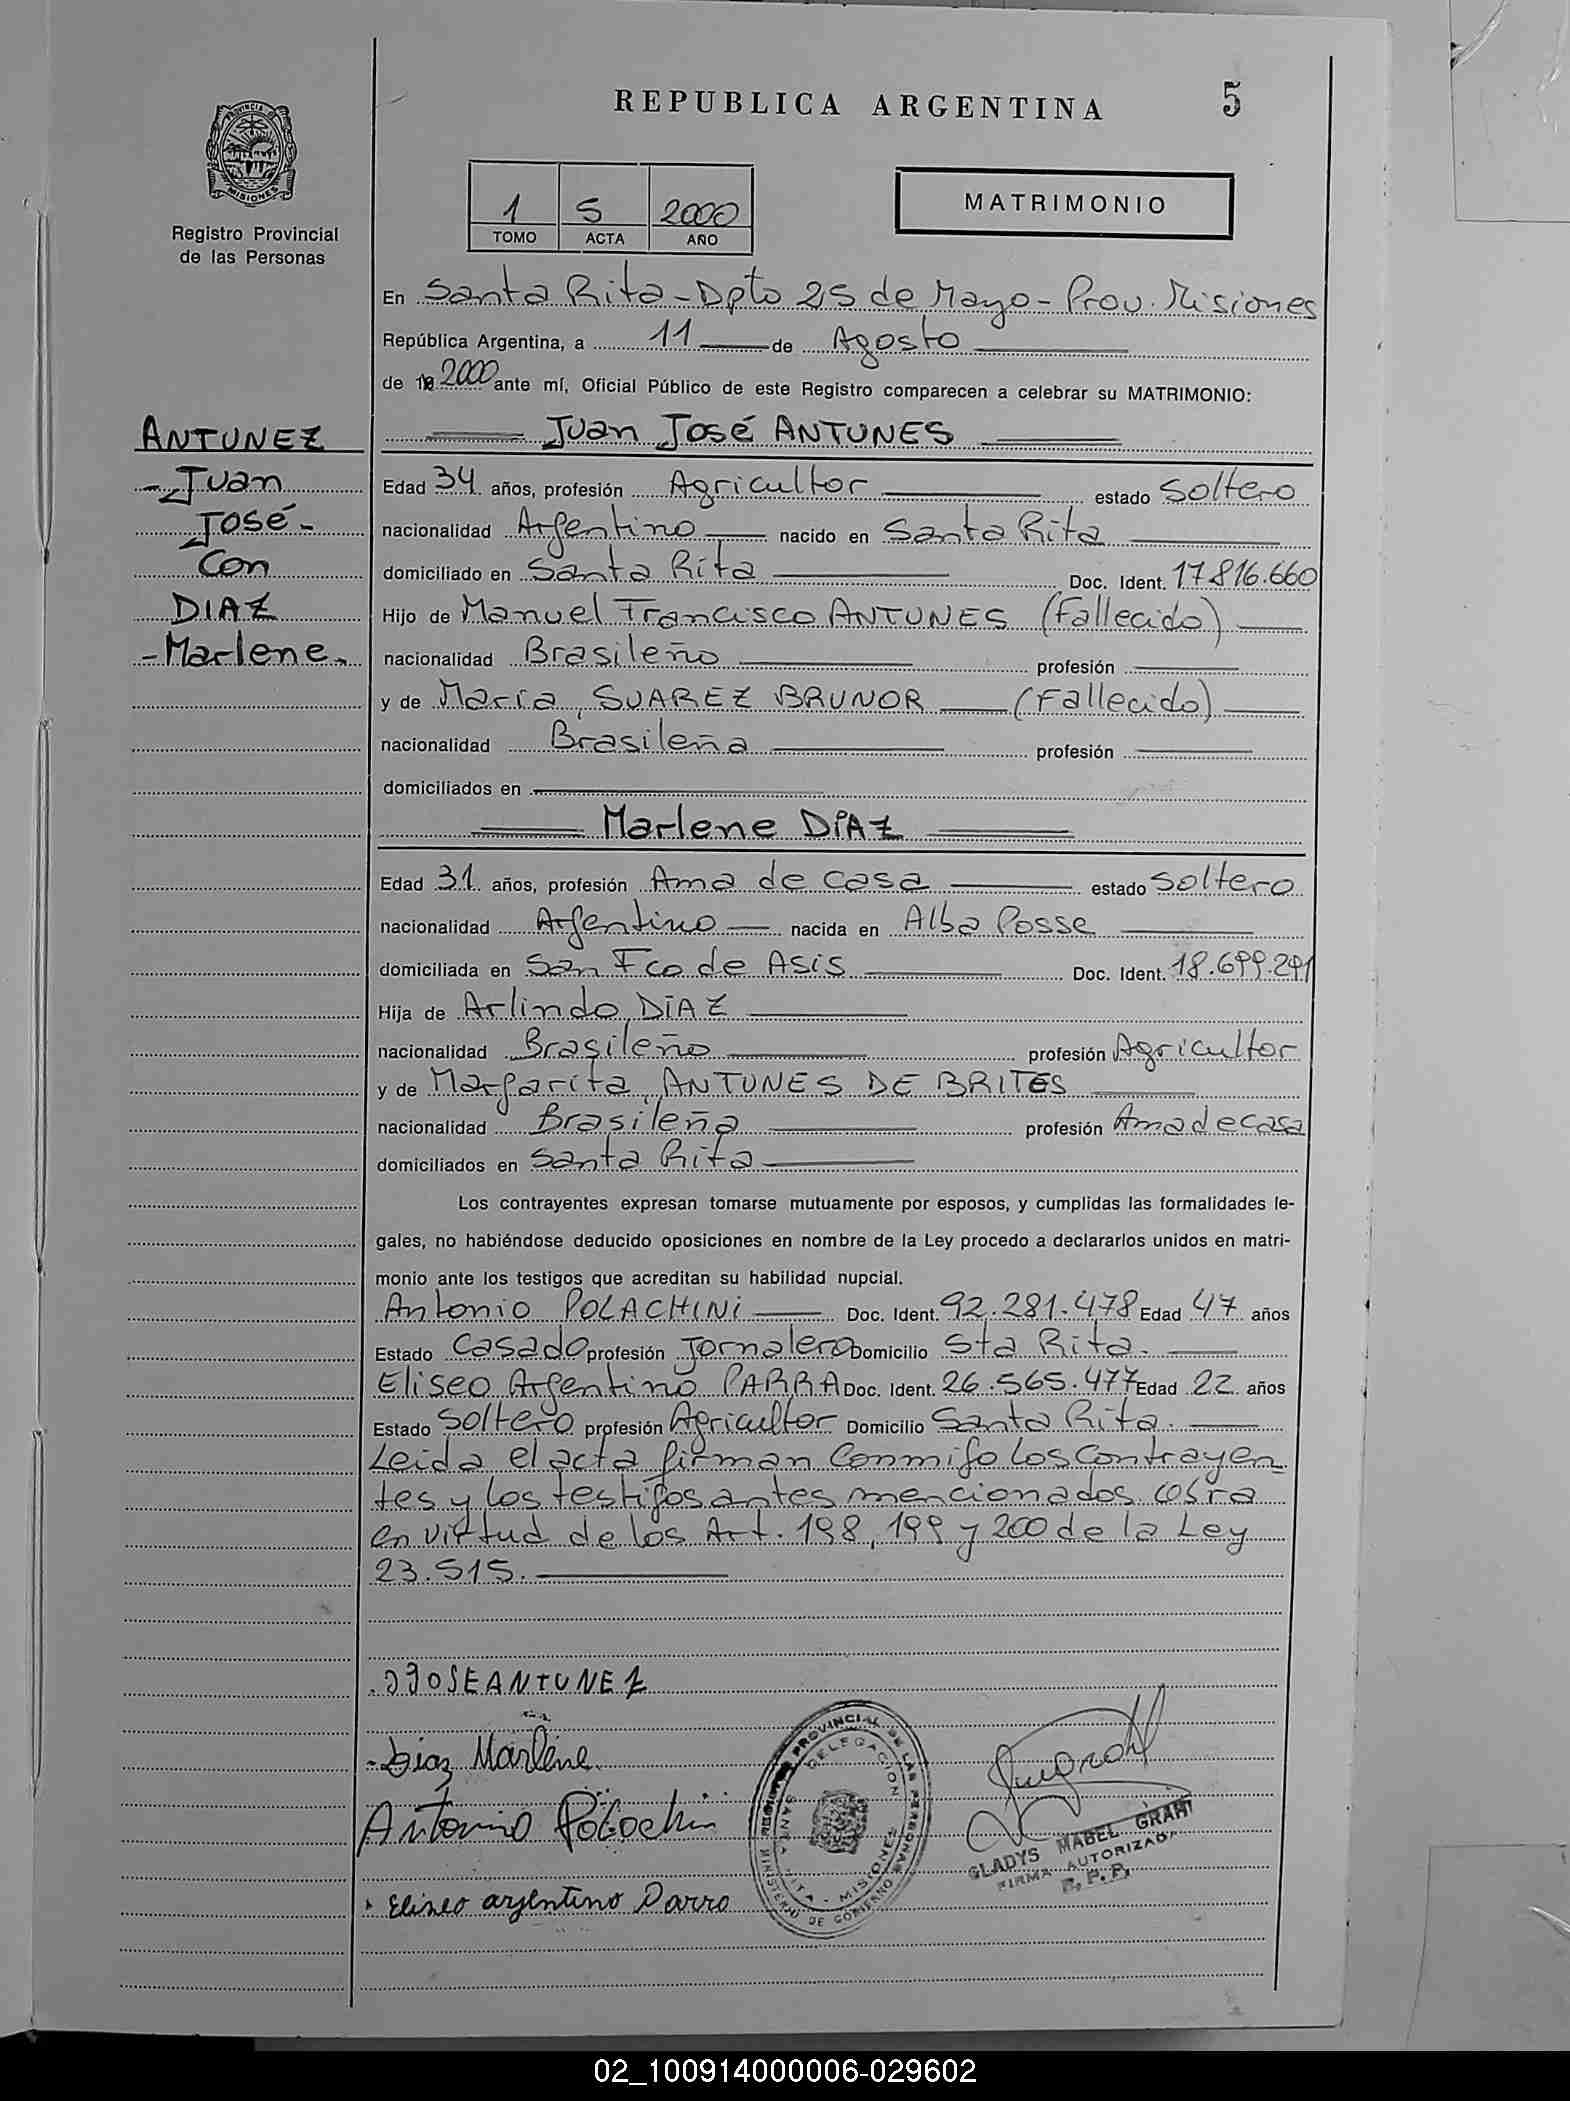 REPUBLICA ARGENTINA
5
PROVINCIA DE
MISIONES
Registro Provincial
de las Personas
1 5 2000
TOMO ACTA AÑO
MATRIMONIO
En Santa Rita - Dpto 25 de Mayo - Prov. Misiones
República Argentina, a 11 de Agosto
de 2000 ante mí, Oficial Público de este Registro comparecen a celebrar su MATRIMONIO:
ANTUNEZ
- Juan
José -
Con
DIAZ
- Marlene -
Juan José ANTUNES
Edad 34 años, profesión Agricultor estado Soltero
nacionalidad Argentino nacido en Santa Rita
domiciliado en Santa Rita Doc. Ident. 17.816.660
Hijo de Manuel Francisco ANTUNES (Fallecido)
nacionalidad Brasileño profesión
y de María, SUAREZ BRUNOR (Fallecido)
nacionalidad Brasileña profesión
domiciliados en
Marlene DIAZ
Edad 31 años, profesión Ama de casa estado Soltero
nacionalidad Argentino nacida en Alba Posse
domiciliada en San Fco de Asis Doc. Ident. 18.699.291
Hija de Arlindo DIAZ
nacionalidad Brasileño profesión Agricultor
y de Margarita, ANTUNES DE BRITES
nacionalidad Brasileña profesión Ama de casa
domiciliados en Santa Rita
Los contrayentes expresan tomarse mutuamente por esposos, y cumplidas las formalidades le-
gales, no habiéndose deducido oposiciones en nombre de la Ley procedo a declararlos unidos en matri-
monio ante los testigos que acreditan su habilidad nupcial.
Antonio POLACHINI Doc. Ident. 92.281.478 Edad 47 años
Estado Casado profesión Jornalero Domicilio Sta Rita.
Eliseo Argentino PARRA Doc. Ident. 26.565.477 Edad 22 años
Estado Soltero profesión Agricultor Domicilio Santa Rita.
Leida el acta firman Conmigo los Contrayen-
tes y los testigos antes mencionados obra
en virtud de los Art. 198, 199 y 200 de la Ley
23.515.
JJOSEANTUNEZ
- Diaz Marlene.
Antonio Polochin
Eliseo argentino Parra
REGISTRO PROVINCIAL DE LAS PERSONAS
DELEGACION
SANTA RITA - MISIONES
MINISTERIO DE GOBIERNO
GLADYS MABEL GRAHL
FIRMA AUTORIZADA
R. P. P.
02_100914000006-029602